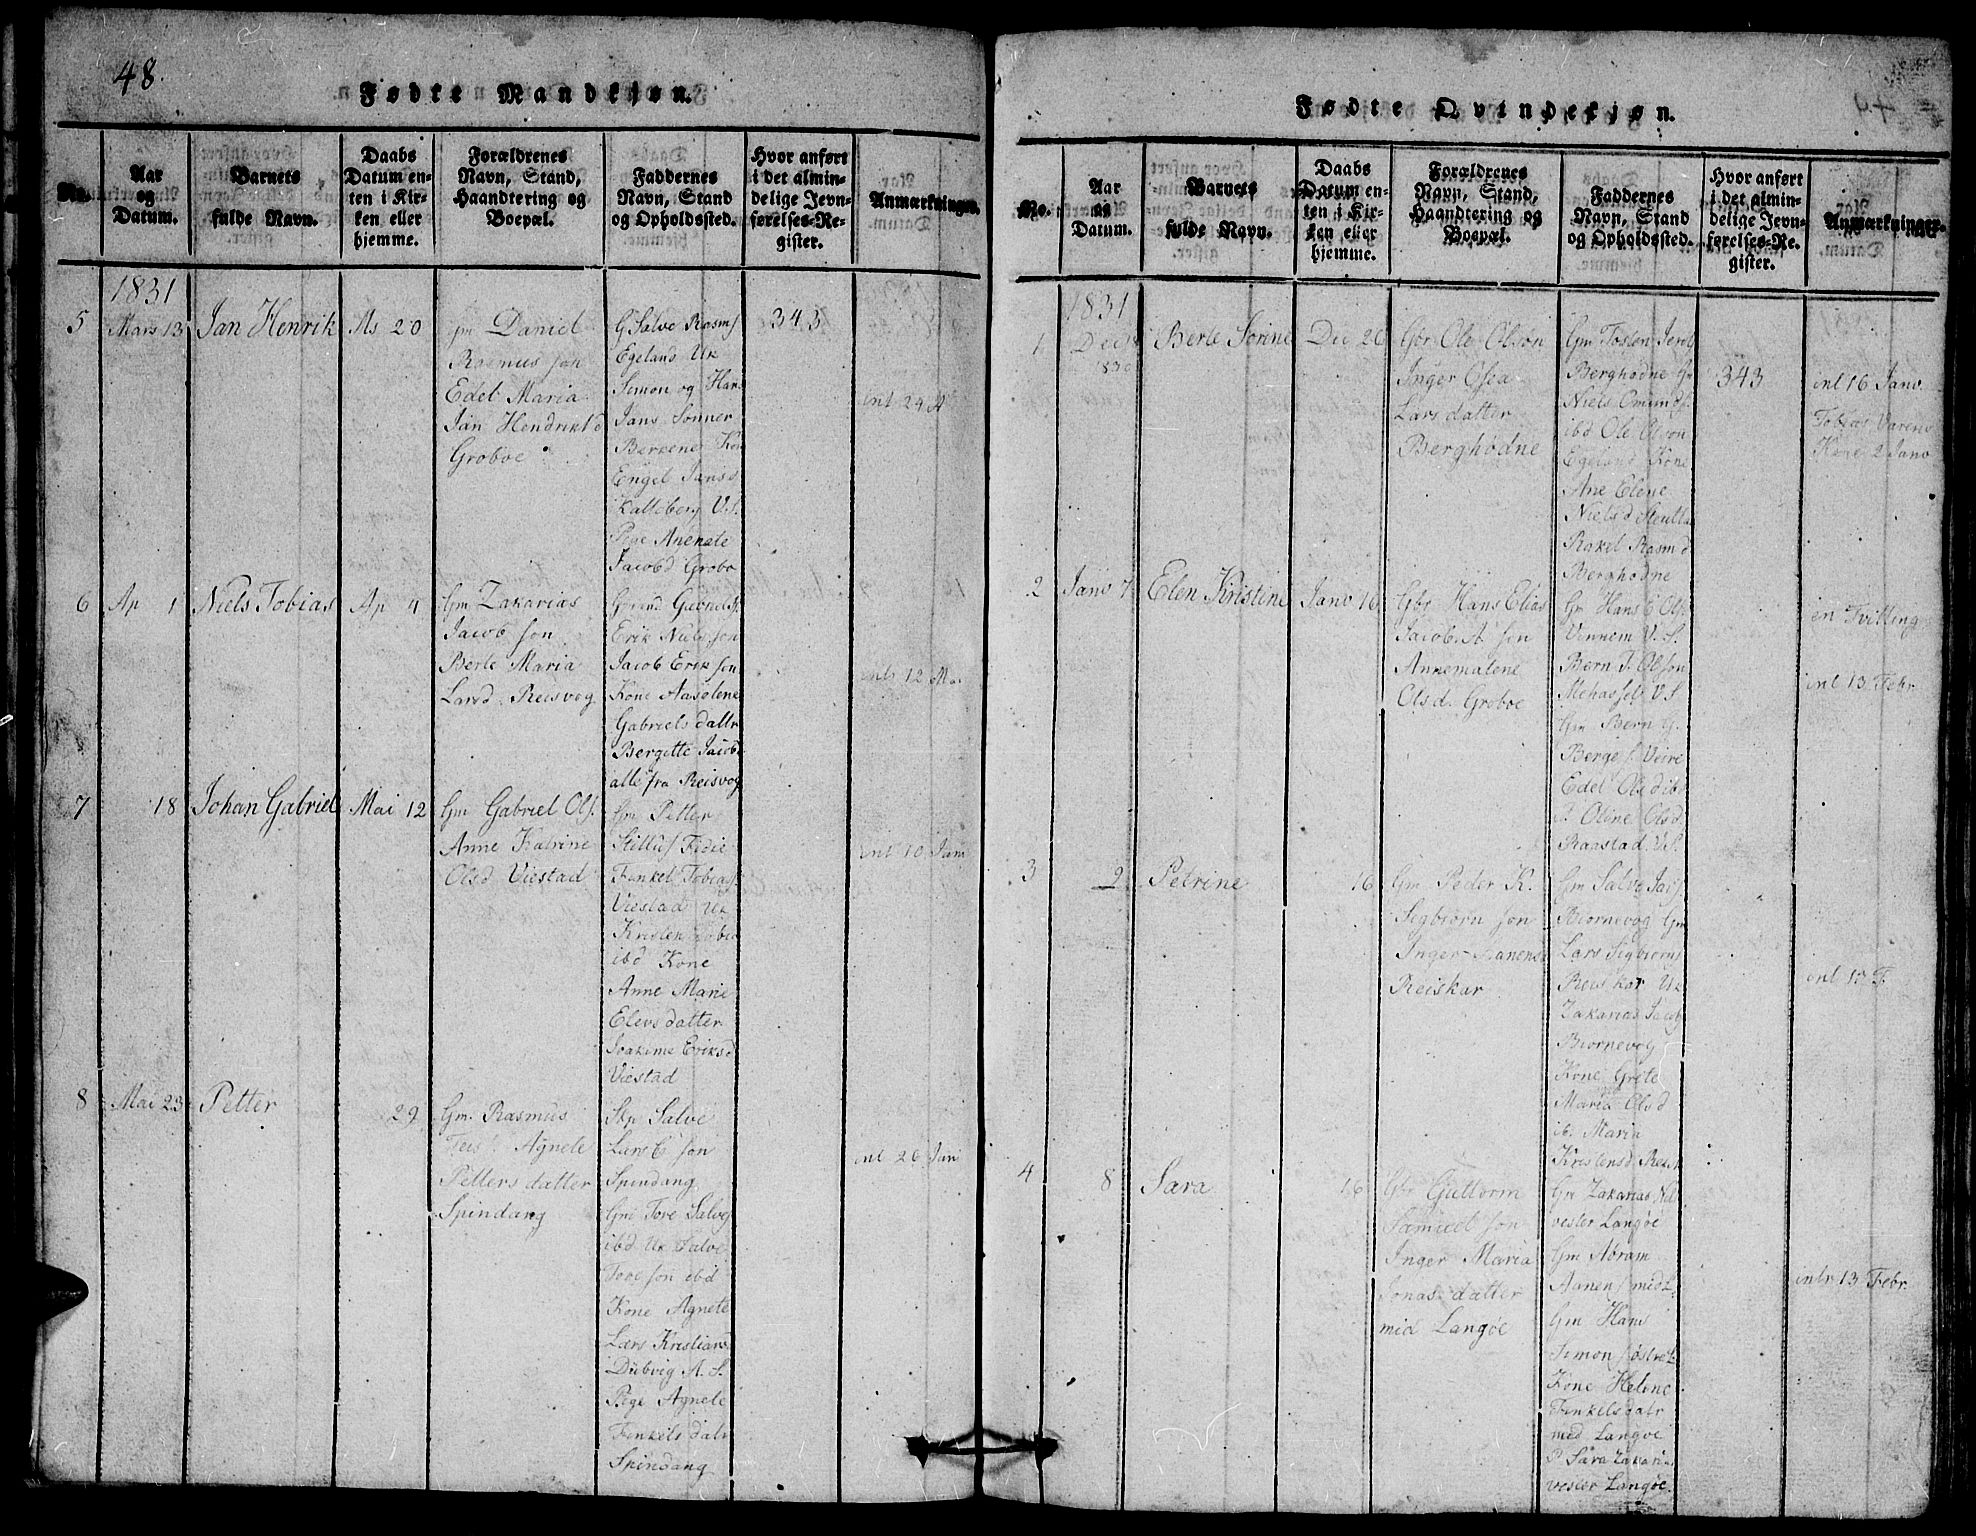 48.
Fødte Mandkjøn.
No.
Aar
og
Datum.
Barnets
fulde Navn.
Daabs
Datum en-
ten i Kir-
ken eller
hjemme.
Forældrenes
Navn, Stand,
Haandtering og
Boepæl.
Faddernes
Navn, Stand
og Opholdssted.
Hvor anført
i det almin-
delige Jevn-
førelses-Re-
gister.
Anmærkninger.
1831
5
Mars 13
Jan Henrik
Ms 20
Gm Daniel
Rasmus son
Edel Maria
Jan Hendriks d
Groboe
G Salve Rasm s
Egeland Uk
Simon og Hans
Jans Sønner
Bervene Kon
Engel Jans d
Kalleberg V.S.
Pige Anenate
Jacobd Grobo
343
int 24 A
6
Ap 1
Niels Tobias
Ap 4
Gm Zakarias
Jacob son
Berte Maria
Larsd. Reisvog
Erik Niels son
Jacob Erik son
Kone Aasolene
Gabriels dattr
Bergitte Jacobs
alle fra Reisvog
intr 12 Mai
7
18
Johan Gabriel
Mai 12
Gm Gabriel Ols.
Anne Katrine
Olsd Viestad
Gm Petter
Fedie
Tenkel Tobias
Viestad Uk
Kristen Tobias
ibd Kone
Anne Marie
Elevs datter
Joakime Eriksd
Viestad
int 10 Jun
8
Mai 23
Petter
29
Gm. Rasmus
Teis. Agnete
Petters datter
Spindang
Skp Salve
Lars C son
Spindang
Gm Tore Salves
ibd Uk Salve
Tore son ibd
Kone Agnete
Lars Kristians
Dübvig A. S.
Pige Agnete
Tenkels datr
Spindang
int 26 Juni
Fødte Qvindekjøn.
No.
Aar
og
Datum.
Barnets
fulde Navn.
Daabs
Datum en-
ten i Kir-
ken eller
hjemme.
Forældrenes
Navn, Stand,
Haandtering og
Boepæl.
Faddernes
Navn, Stand
og Opholdssted.
Hvor anført
i det almin-
delige Jevn-
førelses-Re-
gister.
Anmærkninger.
1831
1
Dec
1830
Berte Sorine
Dec 26
Gbr Ole Olson
Inger Osea
Lars datter
Berghødne
Gm Tosten
Berghødne Gm
Niels Omunds
ibd Ole Olson
Egeland Kone
Ane Elene
Niels d
Rakel Rasm d
Berghodne
343
int 16 Janv
Tobias
Kone 2 Janv
2
Janv 7
Elen Kristine
Janv 16
Gbr Hans Elias
Jacob. A son
Annemalene
Olsd. Groboe
Gm Hans E Ols
Vennem V. S.
Bern T. Olson
V. S
Gm Bern G.
Berge s Veire
Edel Olsd ibd
P. Oline Olsd
Raastad. V. S.
en Tvilling
int 13 Febr
3
9
Petrine
16
Gm Peder K.
Sigbiorn son
Inger
Reiskar
Gm Salve
Biornevog Gm
Lars Sigbiorns
Reiskar Uk
Zakarias Jacob
Biornevog
Kone Grete
Maria Ols d
ib. Maria
Kristensd
int 17 F
4
8
Sara
16
Gbr Guttorm
Samuel son
Inger Maria
Jonas datter
mid Langøe
Gm Zakarias
vester Langøe
Gm Abram
Aanen s mid L.
Gm Hans
Simon s østre L
Kone Helene
Tenkelsdatr
med Langoe
P Sara Zakari
vester Langøe.
intr 13 Febr.